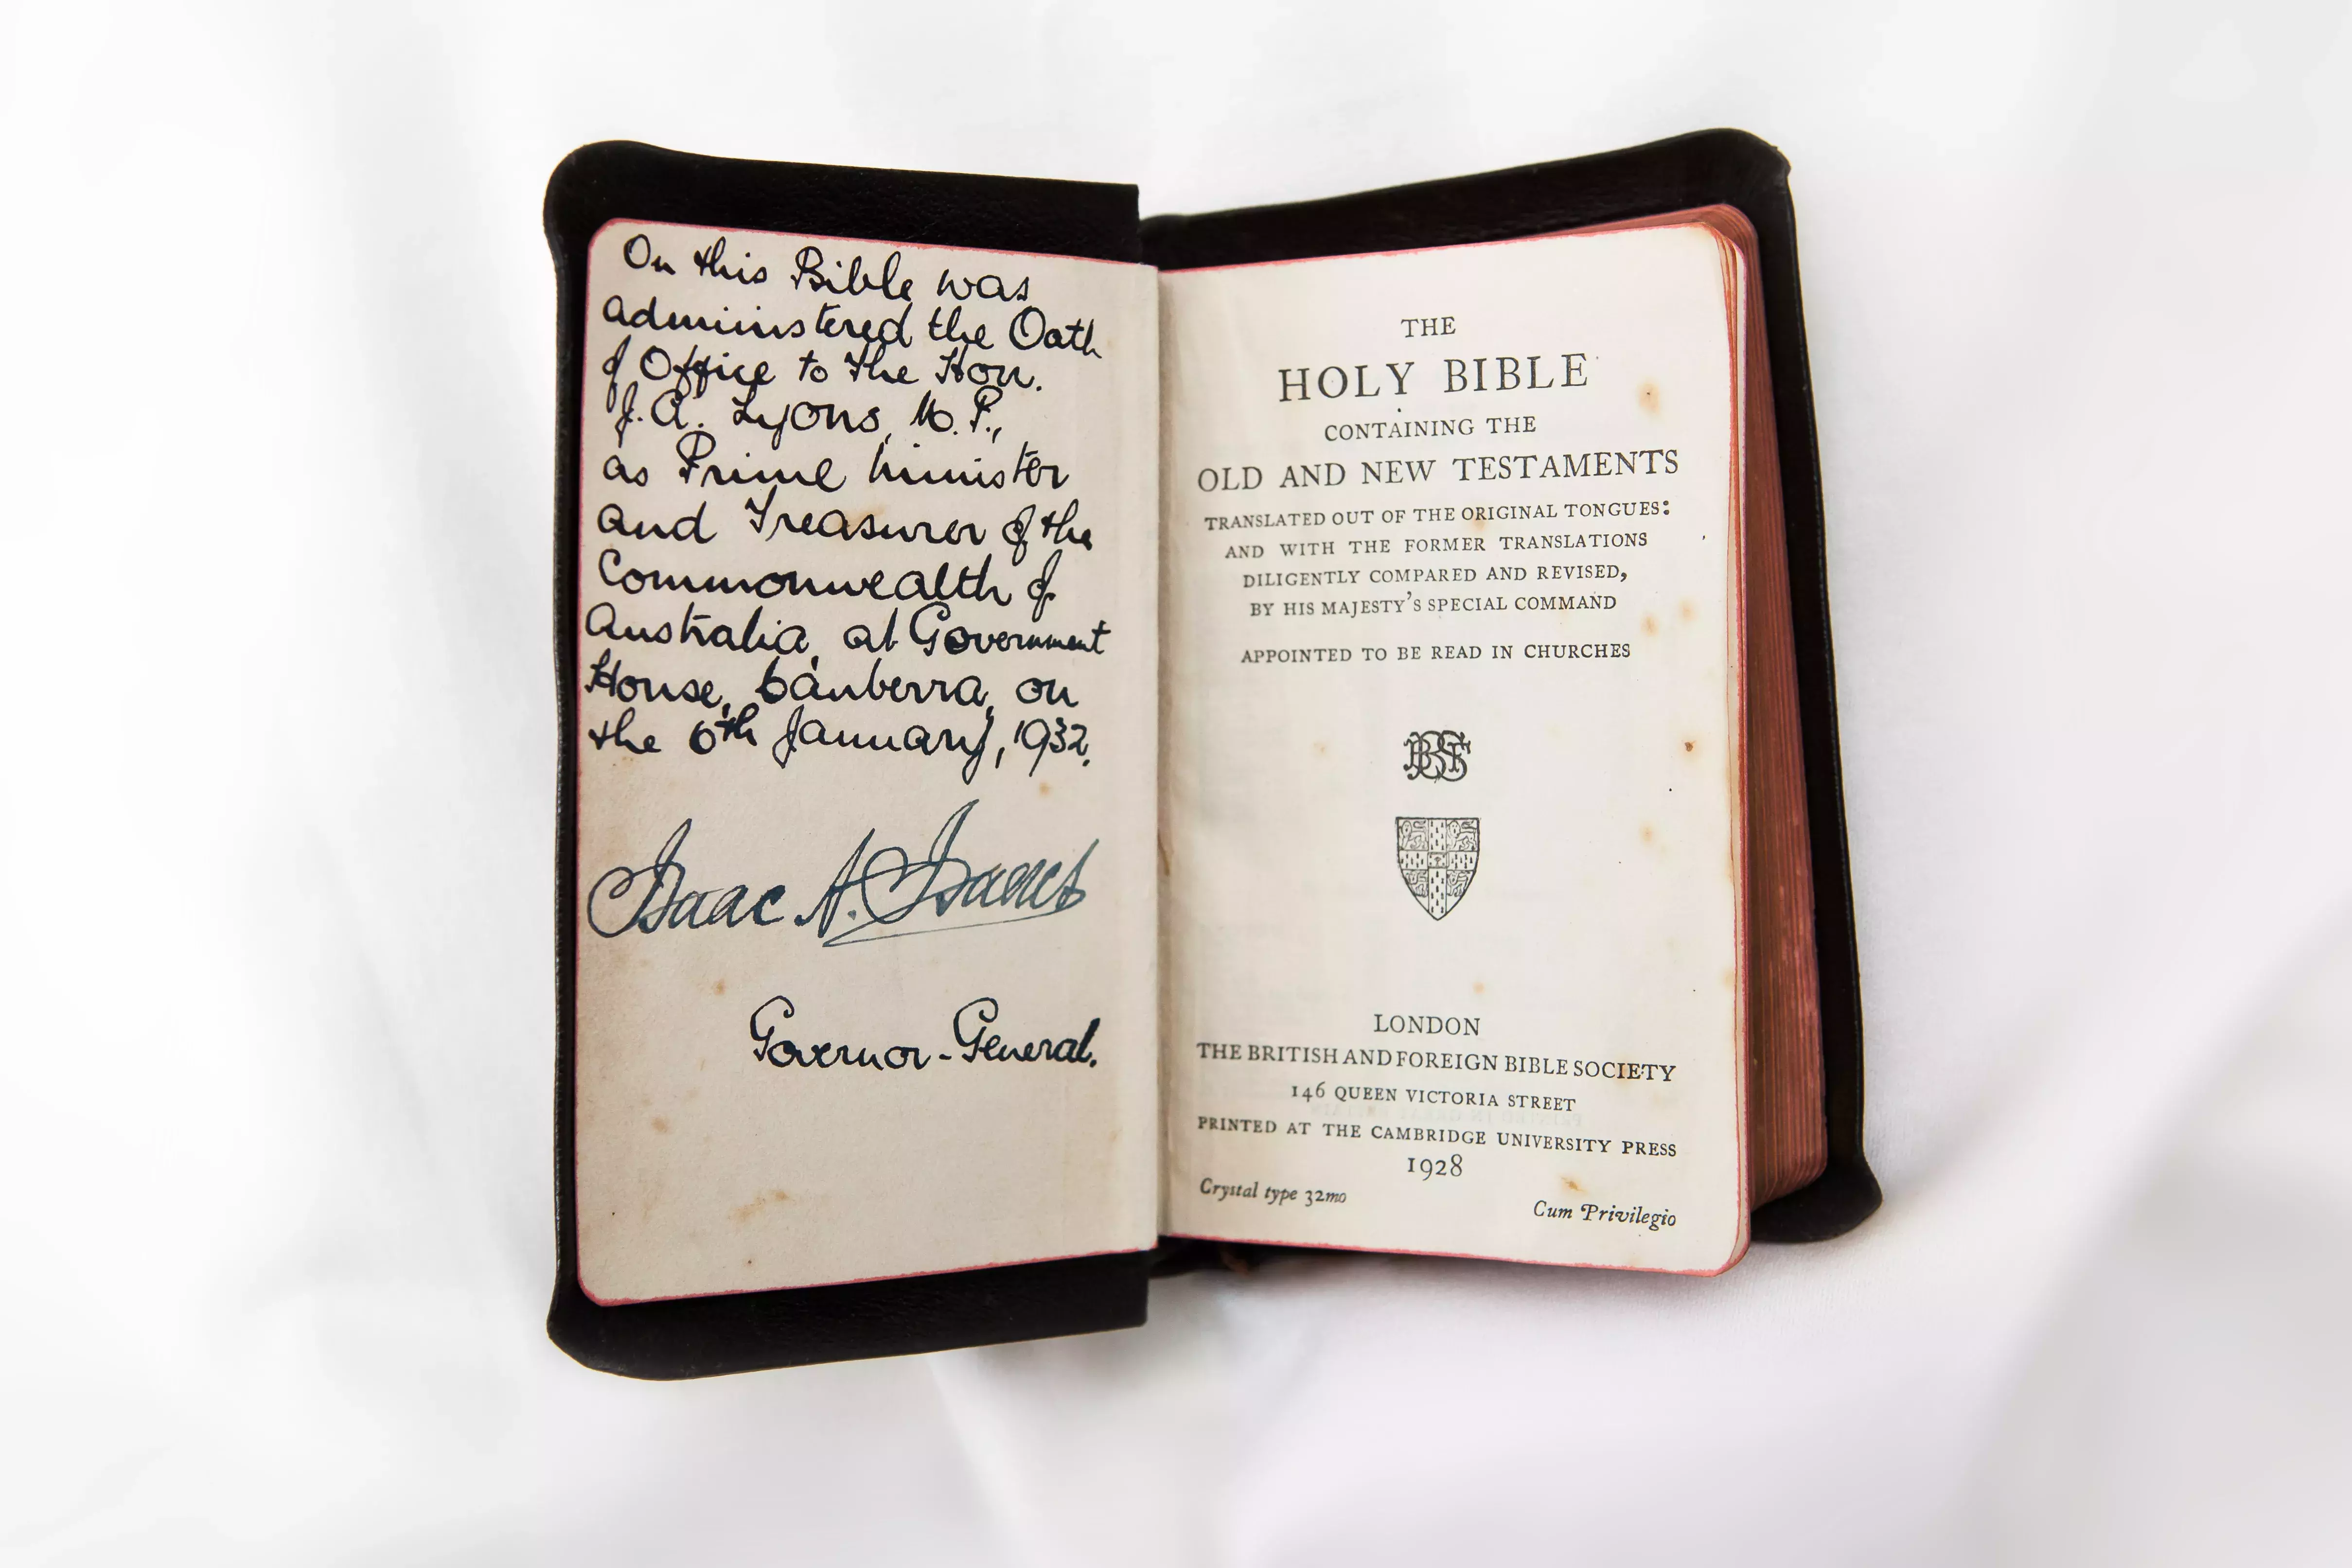 On this Bible was
administered the Oath
of Office to the Hon.
J.A. Lyons, M.P.,
as Prime Minister
and Treasurer of the
Commonwealth of
Australia, at Government
House, Canberra, on
the 6th January, 1932.
Isaac A. Isaacs
Governor-General.
THE
HOLY BIBLE
CONTAINING THE
OLD AND NEW TESTAMENTS
TRANSLATED OUT OF THE ORIGINAL TONGUES:
AND WITH THE FORMER TRANSLATIONS
DILIGENTLY COMPARED AND REVISED,
BY HIS MAJESTY'S SPECIAL COMMAND
APPOINTED TO BE READ IN CHURCHES
BFBS
LONDON
THE BRITISH AND FOREIGN BIBLE SOCIETY
146 QUEEN VICTORIA STREET
PRINTED AT THE CAMBRIDGE UNIVERSITY PRESS
1928
Crystal type 32mo
Cum Privilegio